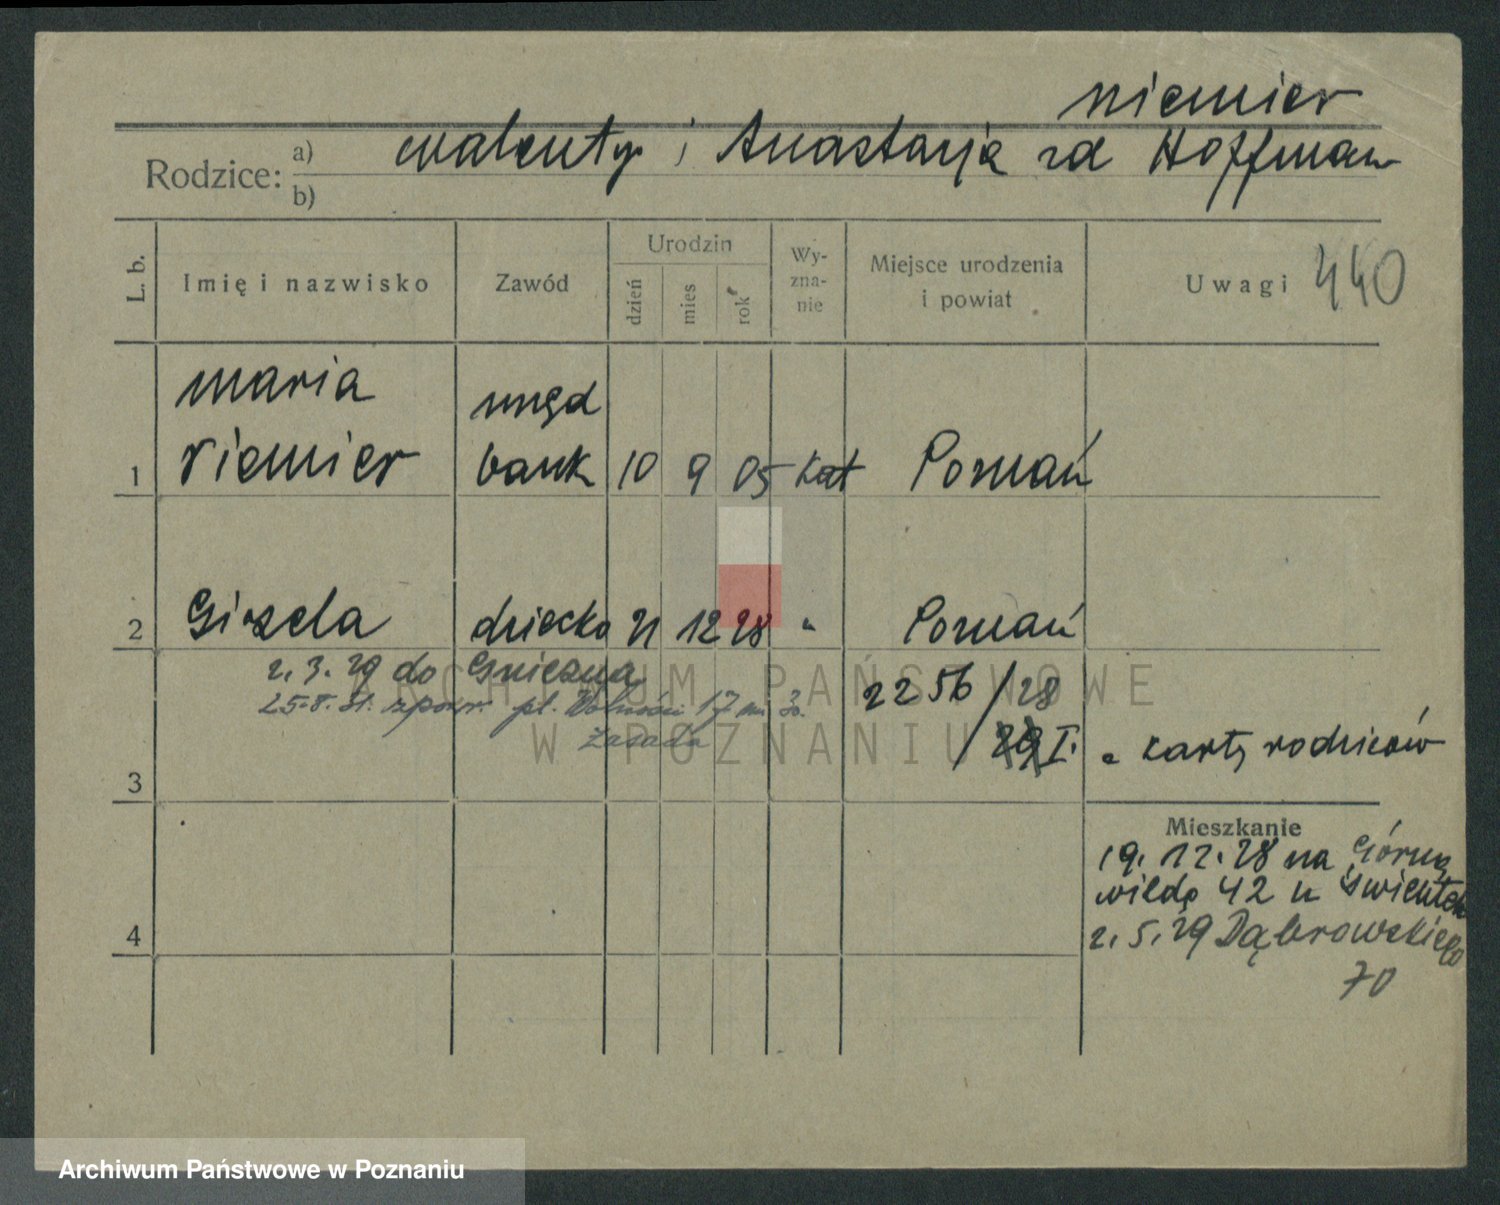 Niemier
Rodzice: a) Walenty i Anastazja zd Hoffman
b)
L. b.
Imię i nazwisko
Zawód
Urodzin
dzień
mies
rok
Wy-
zna-
nie
Miejsce urodzenia
i powiat
Uwagi 440
Maria urzęd
1 Niemier bank 10 9 05 kat Poznań
2 Gizela dziecko 21 12 28 " Poznań
2.3.29 do Gniezna
2256/28
25.8.31. zpowr. pl. Wolności 17 m. 30.
Zasada
/29 I. z karty rodziców
3
Mieszkanie
19.12.28 na Górną
Wildę 42 u Świentek
4
2.5.29 Dąbrowskiego
70
ARCHIWUM PAŃSTWOWE
W POZNANIU
Archiwum Państwowe w Poznaniu